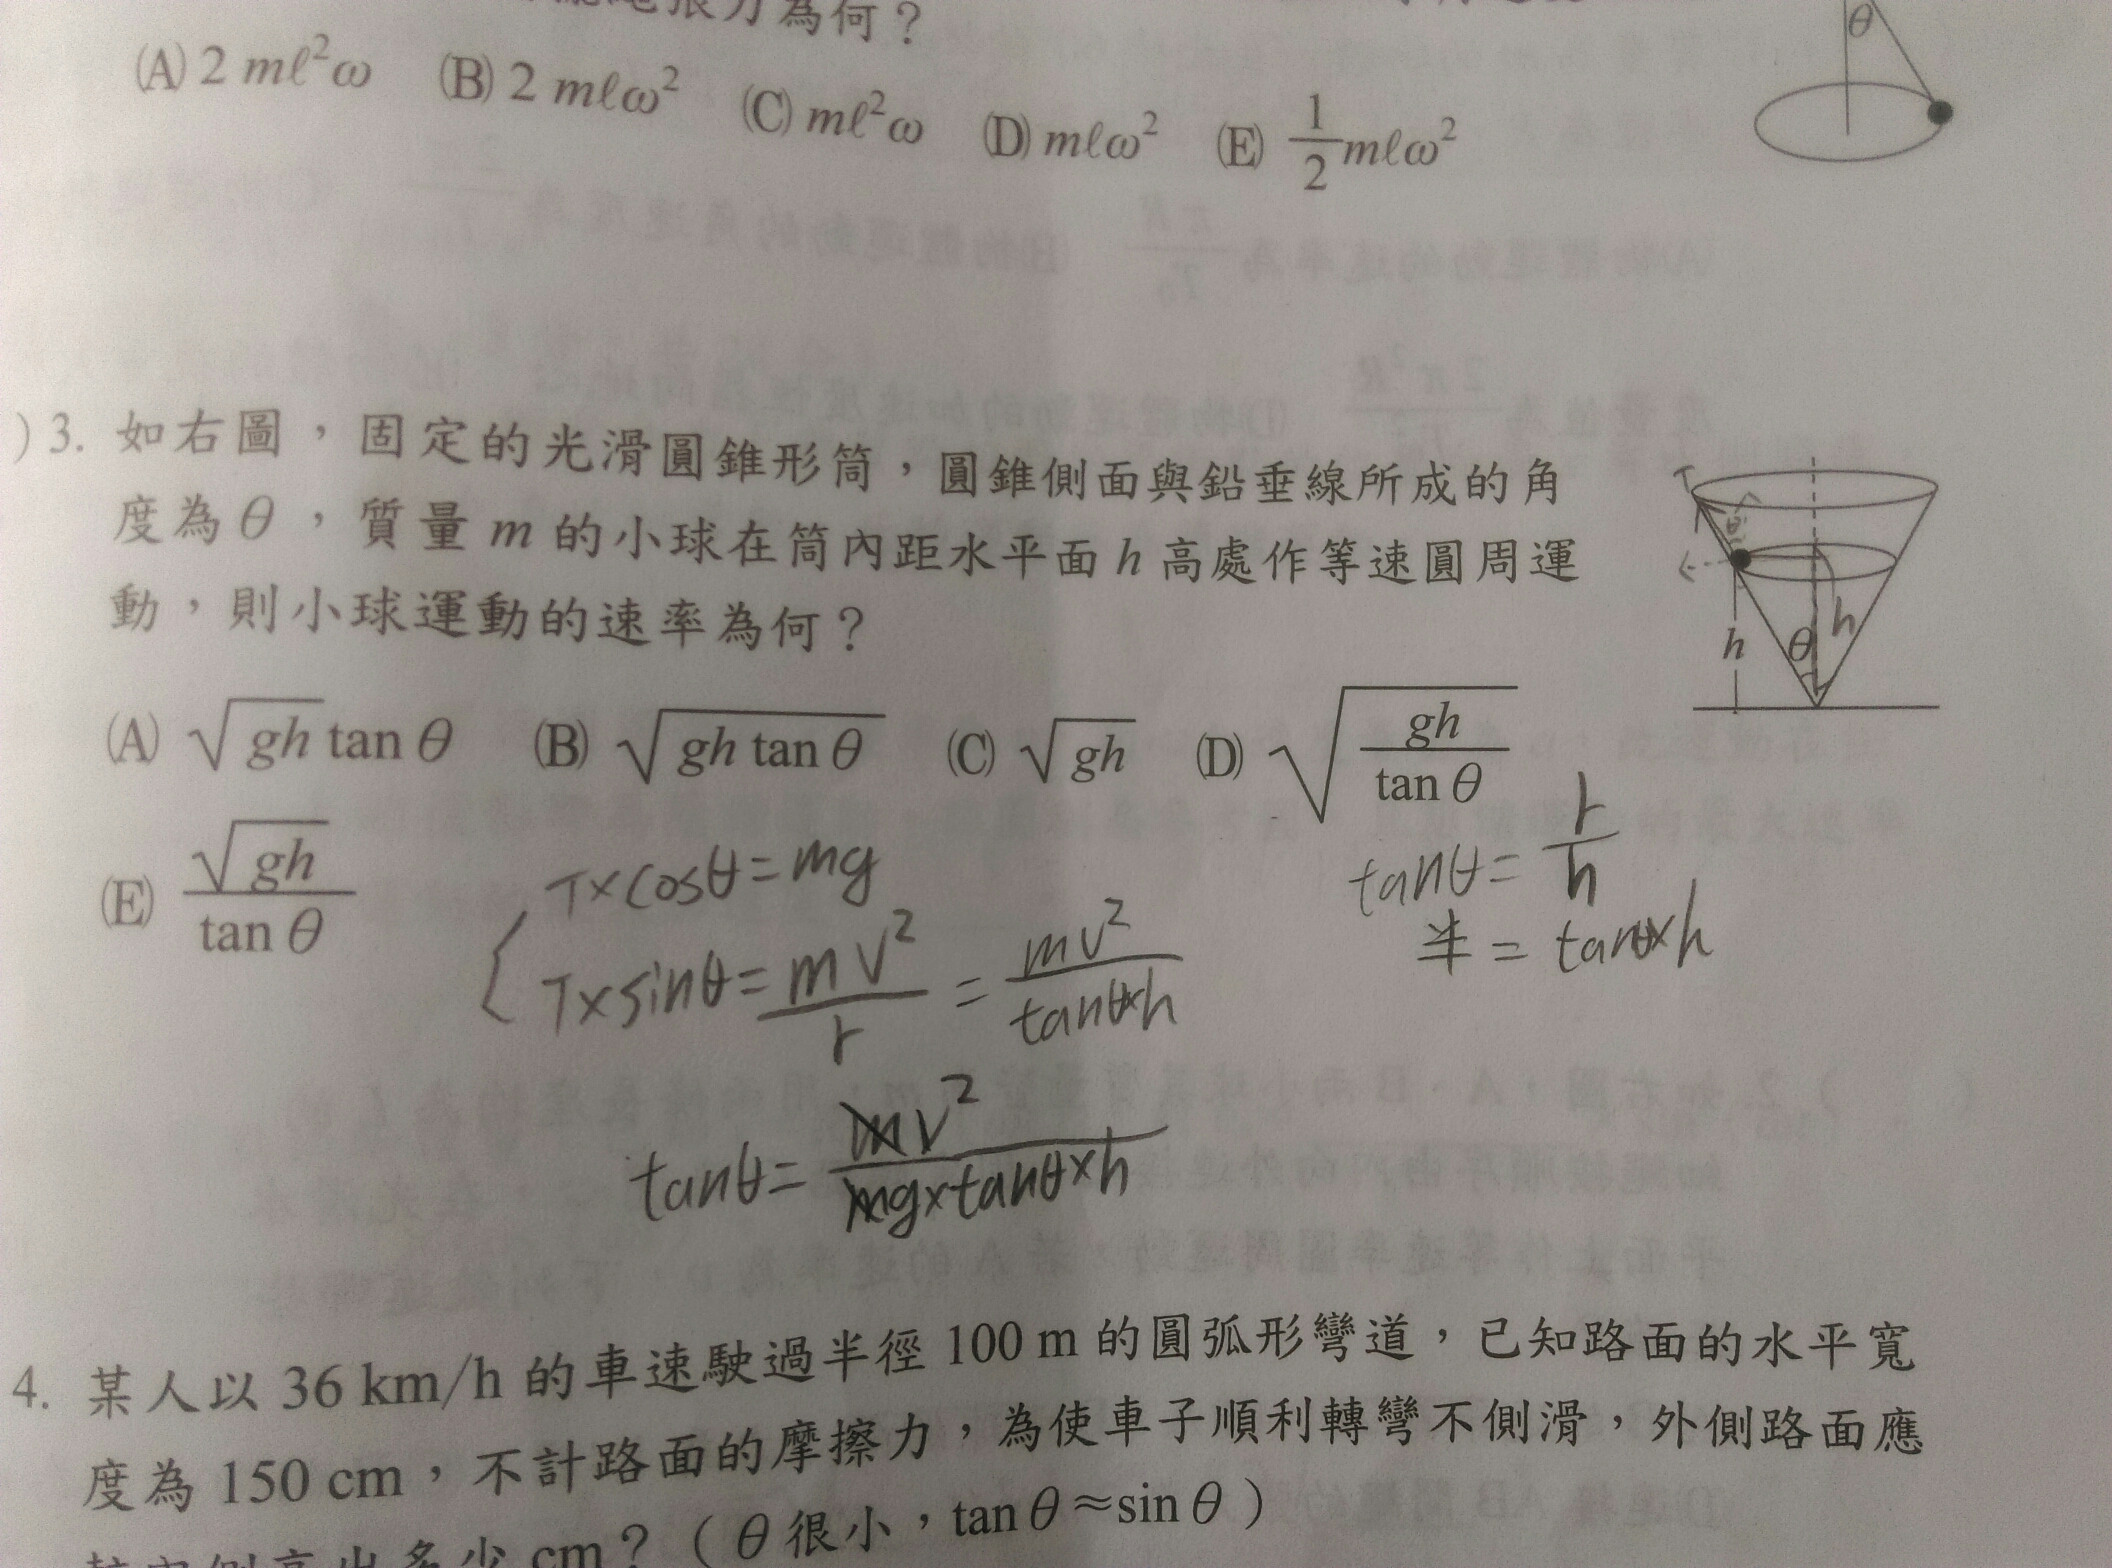 張力為何？
θ
(A) 2 mℓ²ω (B) 2 mℓω² (C) mℓ²ω (D) mℓω² (E) 1/2 mℓω²
)3. 如右圖，固定的光滑圓錐形筒，圓錐側面與鉛垂線所成的角
度為θ，質量 m 的小球在筒內距水平面 h 高處作等速圓周運
動，則小球運動的速率為何？
h θ h
(A) √gh tan θ (B) √(gh tan θ) (C) √gh (D) √(gh/tan θ)
(E) √gh/tan θ
T×cosθ=mg
T×sinθ=mv²/r = mv²/tanθ×h
tanθ=mv²/mg×tanθ×h
tanθ=r/h
= tanθ×h
4. 某人以 36 km/h 的車速駛過半徑 100 m 的圓弧形彎道，已知路面的水平寬
度為 150 cm，不計路面的摩擦力，為使車子順利轉彎不側滑，外側路面應
較內側高出多少 cm？（θ很小，tan θ≈sin θ）